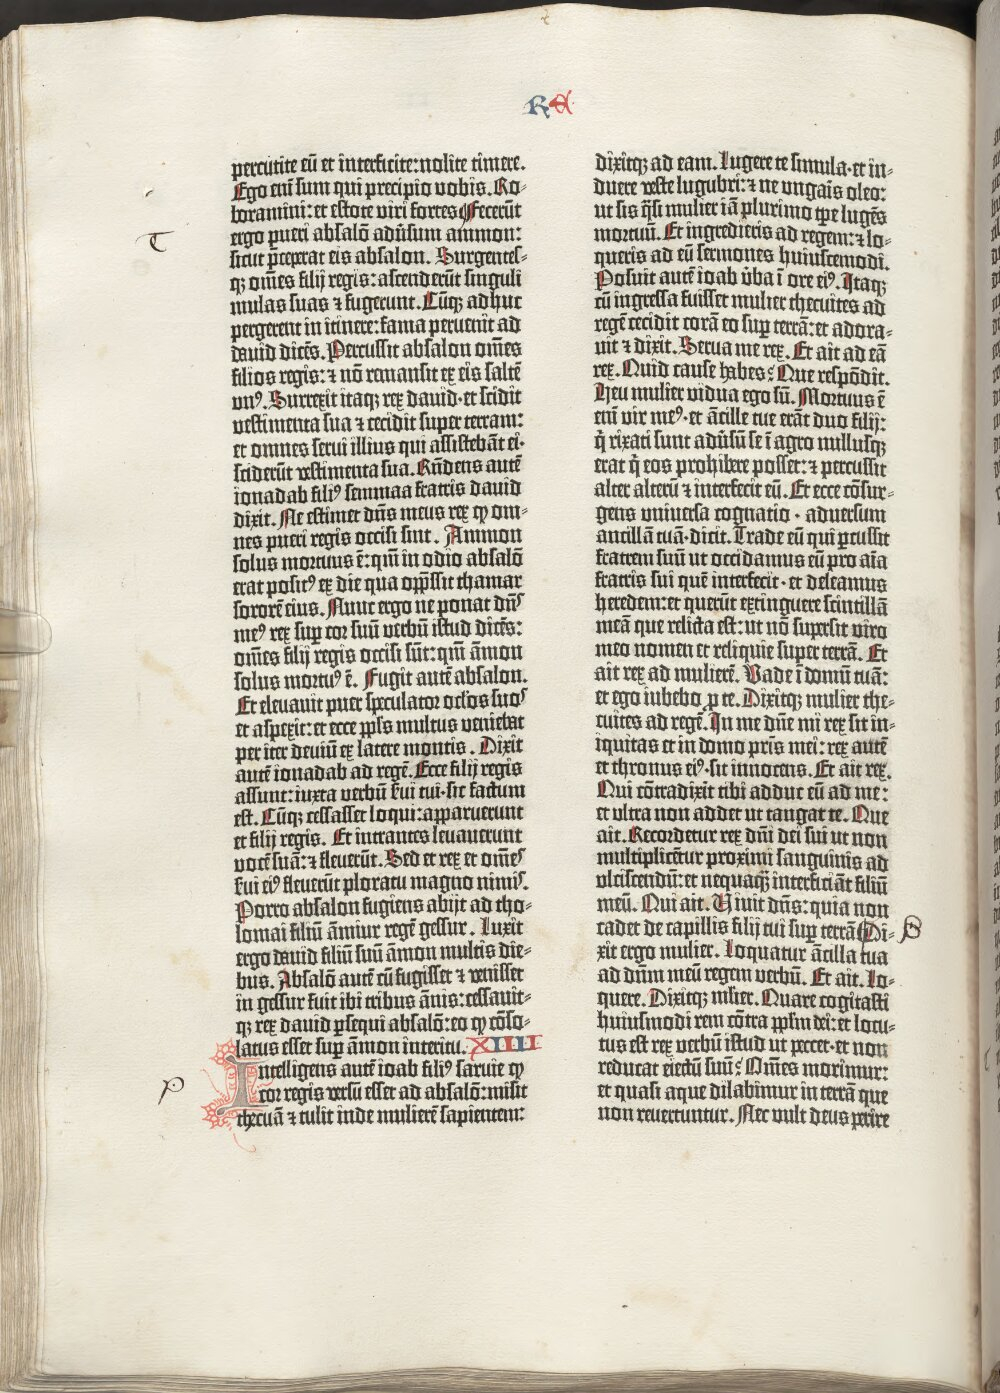 RE
percutite eū et interficite: nolite timere.
Ego em̄ sum qui precipio vobis. Ro-
boramini: et estote viri fortes. Fecerūt
ergo pueri absalō adūsum ammon:
sicut p̄ceperat eis absalon. Surgentes-
qȝ om̄es filij regis: ascenderūt singuli
mulas suas ⁊ fugerunt. Cūqȝ adhuc
pergerent in itinere: fama peruenit ad
david dicēs. Percussit absalon om̄es
filios regis: ⁊ nō remansit ex eis saltē
vnꝰ. Surrexit itaqȝ rex david · et scidit
vestimenta sua ⁊ cecidit super terram:
et omnes serui illius qui assistebāt ei ·
sciderūt vestimenta sua. Rn̄dens autē
ionadab filiꝰ semmaa fratris david
dixit. Ne estimet dn̄s meus rex ꝙ om-
nes pueri regis occisi sint. Ammon
solus mortuus ē: qm̄ in odio absalō
erat positꝰ ex die qua opp̄ssit thamar
sororē eius. Nunc ergo ne ponat dn̄s
meꝰ rex sup cor suū verbū istud dicēs:
om̄es filij regis occisi sūt: qm̄ āmon
solus mortuꝰ ē. Fugit autē absalon.
Et eleuauit puer speculator oc̄los suos
et aspexit: et ecce pp̄ls multus veniebat
per iter deuiū ex latere montis. Dixit
autē ionadab ad regē. Ecce filij regis
assunt: iuxta verbū s̄ui tui · sic factum
est. Cūqȝ cessasset loqui: apparuerunt
et filij regis. Et intrantes leuauerunt
vocē suā: ⁊ fleuerūt. Sed et rex et om̄es
s̄ui eiꝰ fleuerūt ploratu magno nimis.
Porro absalon fugiens abijt ad tho-
lomai filiū āmiur regē gessur. Luxit
ergo david filiū suū āmon multis die-
bus. Absalō autē cū fugisset ⁊ venisset
in gessur fuit ibi tribus ānis: cessauit-
qȝ rex david p̄sequi absalō: eo ꝙ cōso-
latus esset sup āmon interitu. XIIII
Intelligens autē ioab filiꝰ saruie ꝙ
cor regis versū esset ad absalō: misit
thecuā ⁊ tulit inde mulierē sapientem:
dixitqȝ ad eam. Lugere te simula · et in-
duere veste lugubri: ⁊ ne vngaris oleo:
ut sis q̄si mulier iā plurimo tp̄e lugēs
mortuū. Et ingredieris ad regem: ⁊ lo-
queris ad eū sermones huiuscemodi.
Posuit autē ioab v̄ba ī ore eiꝰ. Itaqȝ
cū ingressa fuisset mulier thecuites ad
regē cecidit corā eo sup terrā: et adora-
uit ⁊ dixit. Serua me rex. Et ait ad eā
rex. Quid cause habes? Que respōdit.
Heu mulier vidua ego sū. Mortuus ē
em̄ vir meꝰ · et ācille tue erāt duo filij:
q̄ rixati sunt adūsū se ī agro nullusqȝ
erat q̄ eos prohibere posset: ⁊ percussit
alter alterū ⁊ interfecit eū. Et ecce cōsur-
gens vniuersa cognatio · aduersum
ancillā tuā · dicit. Trade eū qui p̄cussit
fratrem suū ut occidamus eū pro aīa
fratris sui quē interfecit · et deleamus
heredem: et querūt extinguere scintillā
meā que relicta est: ut nō supersit viro
meo nomen et reliquie super terrā. Et
ait rex ad mulierē. Vade ī domū tuā:
et ego iubebo ꝓ te. Dixitqȝ mulier the-
cuites ad regē. In me dn̄e mi rex sit in-
iquitas et in domo pr̄is mei: rex autē
et thronus eiꝰ · sit innocens. Et ait rex.
Qui cōtradixit tibi adduc eū ad me:
et vltra non addet ut tangat te. Que
ait. Recordetur rex dn̄i dei sui ut non
multiplicētur proximi sanguinis ad
vlciscendū: et nequaqȝ̄ interficiāt filiū
meū. Qui ait. Viuit dn̄s: quia non
cadet de capillis filij tui sup terrā. Di-
xit ergo mulier. Loquatur ācilla tua
ad dn̄m meū regem verbū. Et ait. Lo-
quere. Dixitqȝ mlier. Quare cogitasti
huiusmodi rem cōtra pp̄lm dei: et locu-
tus est rex verbū istud ut peccet · et non
reducat eiectū suū? Om̄es morimur:
et quasi aque dilabimur in terrā que
non reuertuntur. Nec vult deus perire